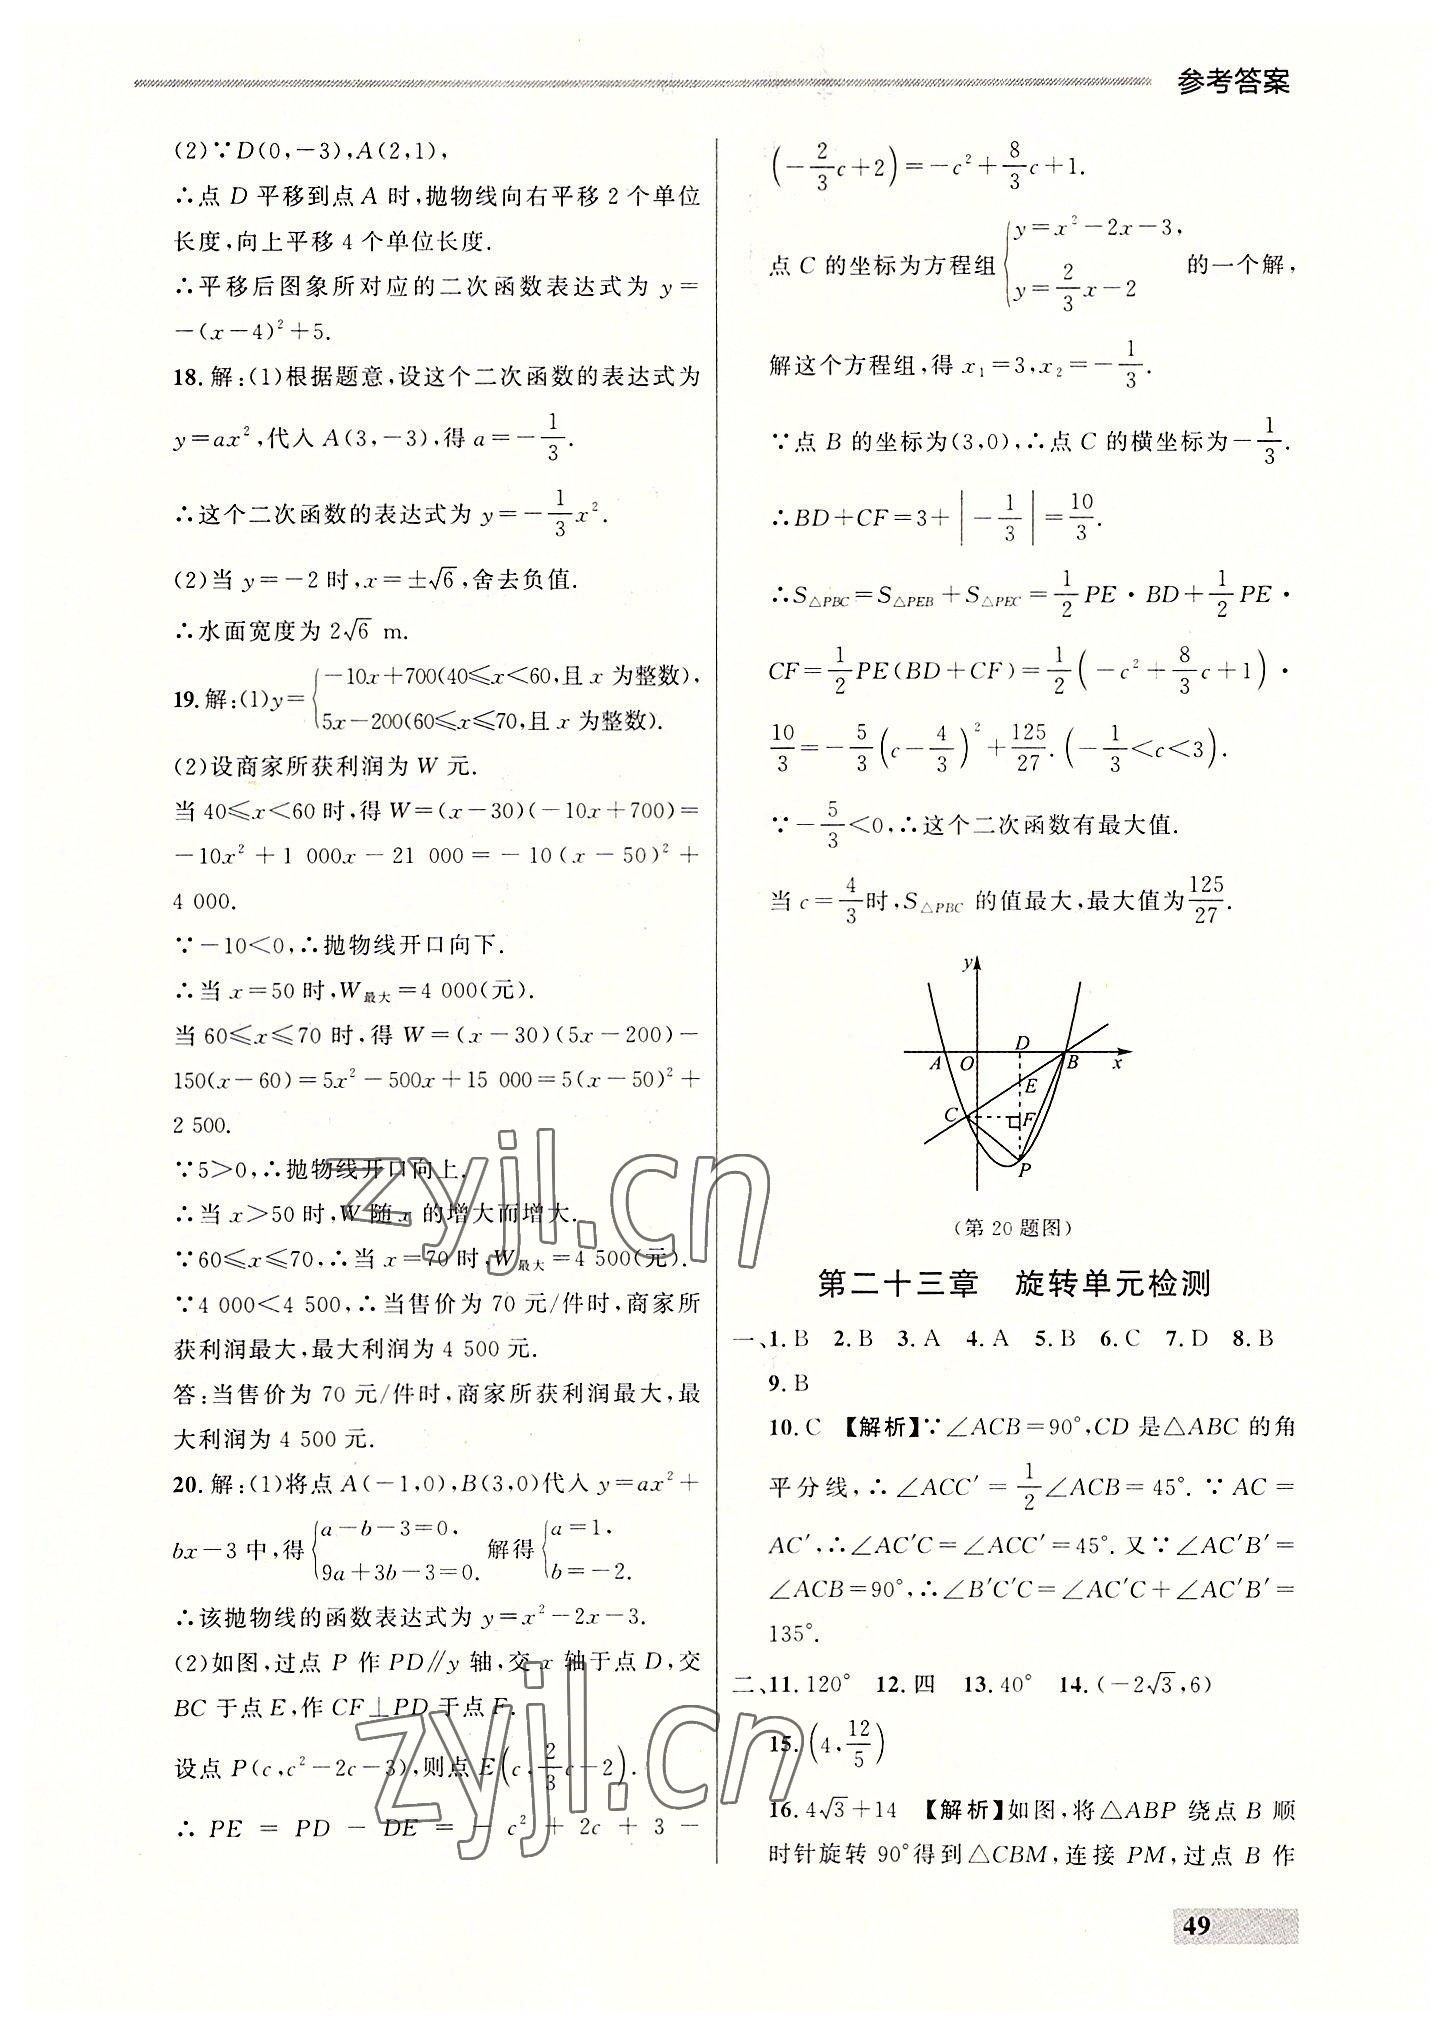 参考答案
(2)∵D(0,-3),A(2,1),
∴点 D 平移到点 A 时,抛物线向右平移 2 个单位
长度,向上平移 4 个单位长度.
∴平移后图象所对应的二次函数表达式为 y=
-(x-4)²+5.
18.解:(1)根据题意,设这个二次函数的表达式为
y=ax²,代入 A(3,-3),得 a=-1/3.
∴这个二次函数的表达式为 y=-1/3x².
(2)当 y=-2 时,x=±√6,舍去负值.
∴水面宽度为 2√6 m.
19.解:(1)y={-10x+700(40≤x<60,且 x 为整数),
5x-200(60≤x≤70,且 x 为整数).
(2)设商家所获利润为 W 元.
当 40≤x<60 时,得 W=(x-30)(-10x+700)=
-10x²+1 000x-21 000=-10(x-50)²+
4 000.
∵-10<0,∴抛物线开口向下.
∴当 x=50 时,W最大=4 000(元).
当 60≤x≤70 时,得 W=(x-30)(5x-200)-
150(x-60)=5x²-500x+15 000=5(x-50)²+
2 500.
∵5>0,∴抛物线开口向上.
∴当 x>50 时,W 随 x 的增大而增大.
∵60≤x≤70,∴当 x=70 时,W最大=4 500(元).
∵4 000<4 500,∴当售价为 70 元/件时,商家所
获利润最大,最大利润为 4 500 元.
答:当售价为 70 元/件时,商家所获利润最大,最
大利润为 4 500 元.
20.解:(1)将点 A(-1,0),B(3,0)代入 y=ax²+
bx-3 中,得{a-b-3=0,
9a+3b-3=0. 解得{a=1,
b=-2.
∴该抛物线的函数表达式为 y=x²-2x-3.
(2)如图,过点 P 作 PD∥y 轴,交 x 轴于点 D,交
BC 于点 E,作 CF⊥PD 于点 F.
设点 P(c,c²-2c-3),则点 E(c,2/3c-2).
∴ PE = PD - DE = -c² + 2c + 3 -
(-2/3c+2)=-c²+8/3c+1.
点 C 的坐标为方程组{y=x²-2x-3,
y=2/3x-2 的一个解,
解这个方程组,得 x₁=3,x₂=-1/3.
∵点 B 的坐标为(3,0),∴点 C 的横坐标为-1/3.
∴BD+CF=3+|-1/3|=10/3.
∴S△PBC=S△PEB+S△PEC=1/2PE·BD+1/2PE·
CF=1/2PE(BD+CF)=1/2(-c²+8/3c+1)·
10/3=-5/3(c-4/3)²+125/27.(-1/3<c<3).
∵-5/3<0,∴这个二次函数有最大值.
当 c=4/3时,S△PBC 的值最大,最大值为125/27.
y
A O D B x
E
C F
P
(第 20 题图)
第二十三章 旋转单元检测
一、1.B 2.B 3.A 4.A 5.B 6.C 7.D 8.B
9.B
10.C 【解析】∵∠ACB=90°,CD 是△ABC 的角
平分线,∴∠ACC′=1/2∠ACB=45°.∵AC=
AC′,∴∠AC′C=∠ACC′=45°.又∵∠AC′B′=
∠ACB=90°,∴∠B′C′C=∠AC′C+∠AC′B′=
135°.
二、11.120° 12.四 13.40° 14.(-2√3,6)
15.(4,12/5)
16.4√3+14 【解析】如图,将△ABP 绕点 B 顺
时针旋转 90°得到△CBM,连接 PM,过点 B 作
49
zyjl.cn
zyjl.cn